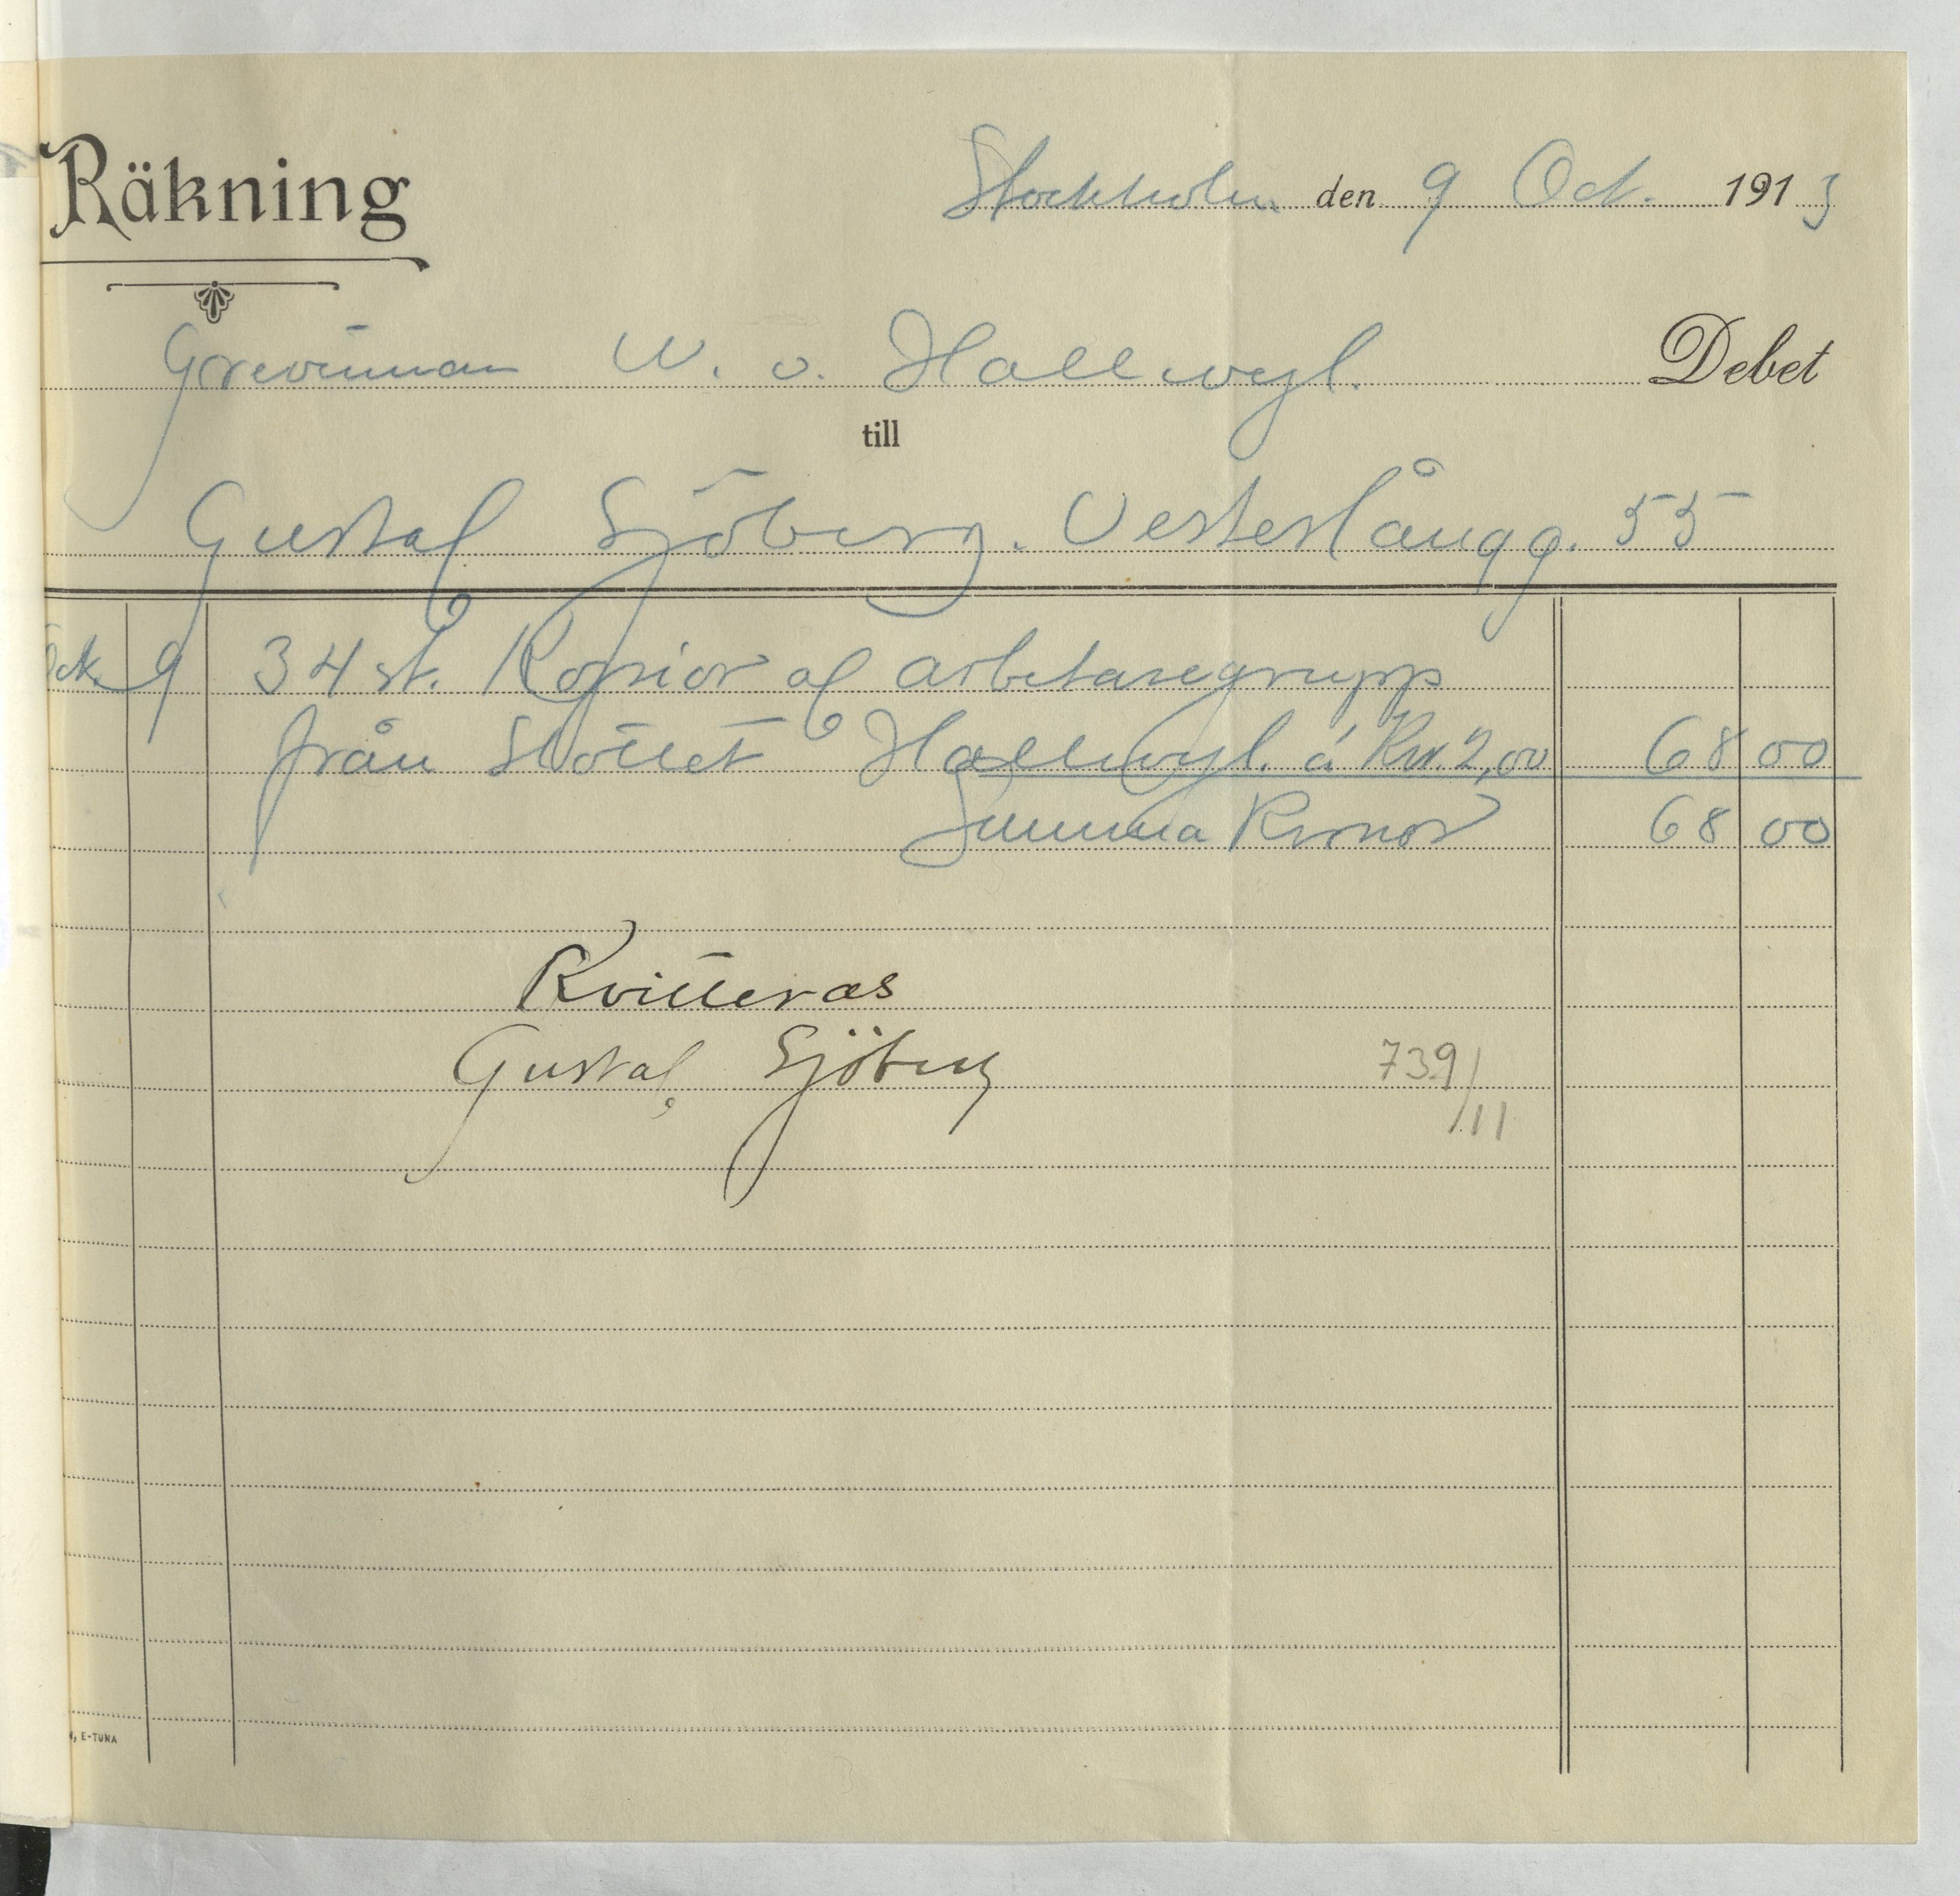 Räkning
Stockholm den 9 Oct. 1913
Grevinnan W. v. Hallwyl. Debet
till
Gustaf Sjöberg. Vesterlångg. 55
Oct. 9 34 st. Kopior af arbetaregrupp
från Slottet Hallwyl. á Kr. 2,00 68 00
Summa Kronor 68 00
Kvitteras
Gustaf Sjöberg
739/11
N, E-TUNA